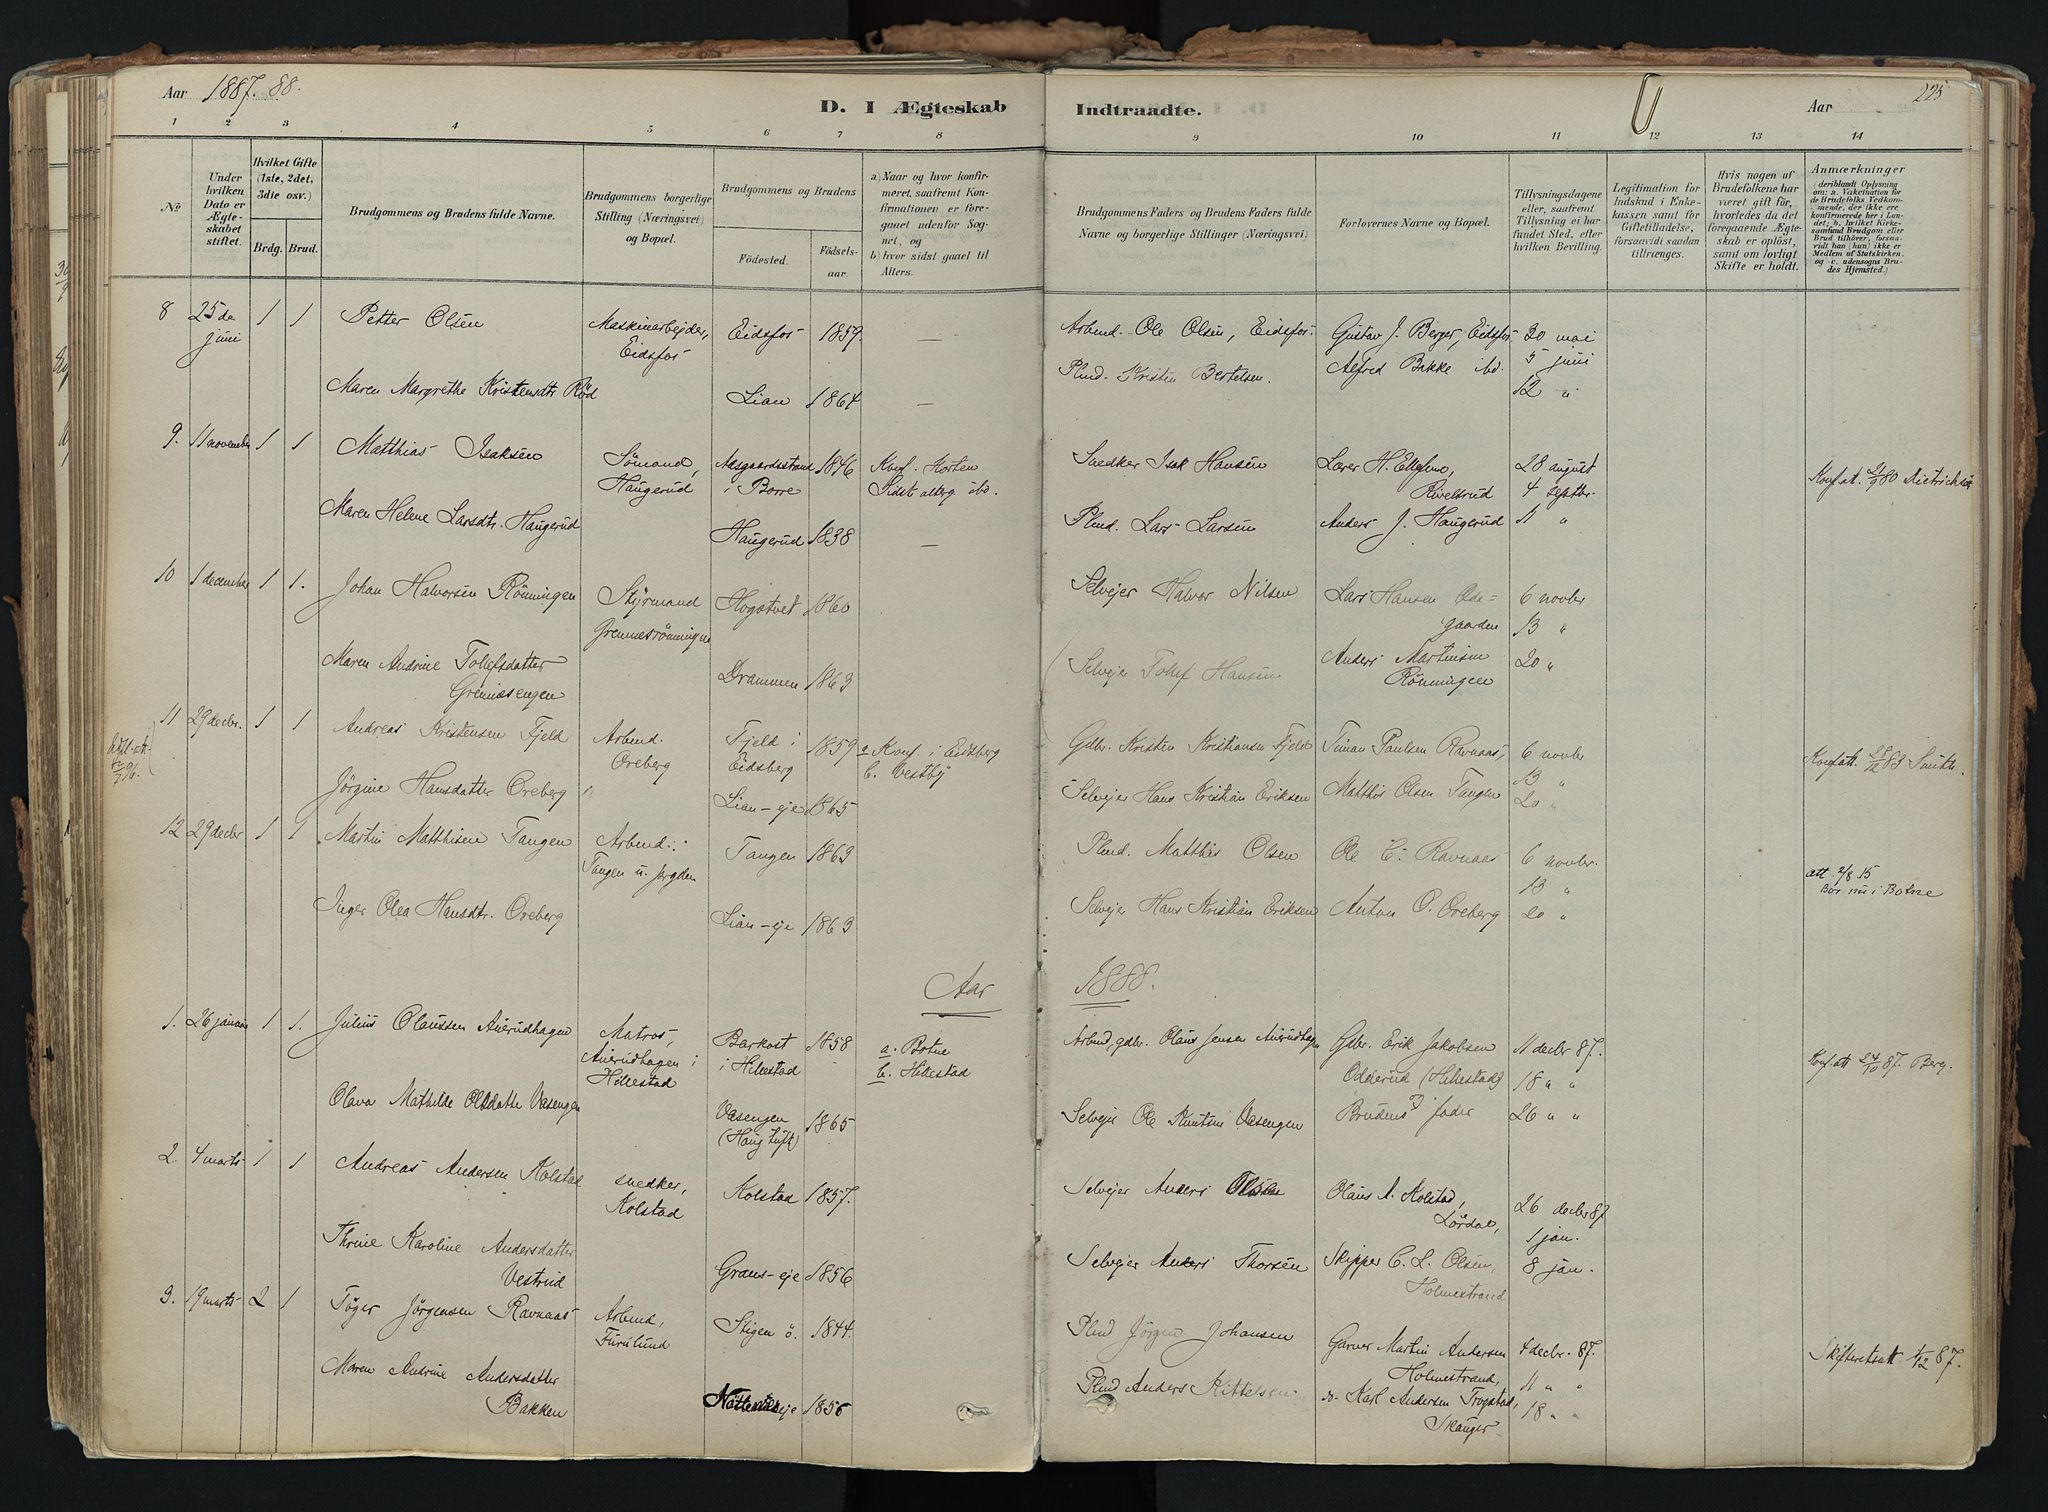 Aar 1887. 88.
D. I Ægteskab Indtraadte.
Aar
225
1 2 3 4 5 6 7 8 9 10 11 12 13 14
No
Under hvilken Dato er Ægteskabet stiftet.
Hvilket Gifte (1ste, 2det, 3die osv.)
Brdg. Brud.
Brudgommens og Brudens fulde Navne.
Brudgommens borgerlige Stilling (Næringsvei) og Bopæl.
Brudgommens og Brudens
Fødested. Fødselsaar.
a) Naar og hvor konfirmeret, saafremt Konfirmationen er foregaaet udenfor Sognet, og
b) hvor sidst gaaet til Alters.
Brudgommens Faders og Brudens Faders fulde Navne og borgerlige Stillinger (Næringsvei)
Forlovernes Navne og Bopæl.
Tillysningsdagene eller, saafremt Tillysning ei har fundet Sted, efter hvilken Bevilling.
Legitimation for Indskud i Enkekassen samt for Giftetilladelse, forsaavidt saadan tiltrænges.
Hvis nogen af Brudefolkene har været gift før, hvorledes da det foregaaende Ægteskab er opløst, samt om lovligt Skifte er holdt.
Anmærkninger
(deriblandt Oplysning om: a. Vakcination for de Brudefolks Vedkommende, der ikke ere konfirmerede her i Landet; b. hvilket Kirkesamfund Brudgom eller Brud tilhører, forsaavidt han (hun) ikke er Medlem af Statskirken. og c. udensogns Brudes Hjemsted.)
8 25de juni 1 1 Petter Olsen Maskinarbejder, Eidsfos Eidsfos 1859. — Arbmd. Ole Olsen, Eidsfos. Gustav J. Berger, Eidsfos 30 mai
Maren Margrethe Kristensdtr Röd Lian 1864 — Plmd. Kristen Bertelsen. Alfred Bakke ibd. 5 juni
12 "
9. 11 november 1 1 Matthias Isaksen Sömand, Haugerud Aasgaardsstrand i Borre 1846 Konf. Horten Sidst alterg ibd. Snedker Isak Hansen Lærer H. Ellefsen, Rivelsrud 28 august
4 septbr. Konf. att. 21/9 80 Dietrichson
Maren Helene Larsdtr. Haugerud Haugerud 1838 — Plmd. Lars Larsen Anders J. Haugerud 11 "
10 1 december 1 1. Johan Halvorsen Rönningen Styrmand Grennesrönningen Hogstvet 1860 Selvejer Halvor Nilsen Lars Hansen Öde=gaarden 6 novbr
13 "
Maren Andrine Tollefsdatter Grennesengen Drammen 1863 Selvejer Tollef Hansen Anders Martinsen Rönningen 20 "
11 29 decbr. 1 1 Andreas Kristensen Fjeld Arbmd. Oreberg Fjeld i Eidsberg 1859 a Konf. i Eidsberg b. Vestby Gdbr. Kristen Kristiansen Fjeld Simon Paulsen Ravnaas, 6 novbr
13 " Konf att. 28/12 83 Smith.
Jörgine Hansdatter Oreberg Lian-eje 1865 Selvejer Hans Kristian Eriksen Matthis Olsen Tangen 20 "
12 29 decbr 1 1 Martin Matthisen Tangen Arbmd. Tangen u. Jorgden Tangen 1863 Plmd. Matthis Olsen Ole C. Ravnaas 6 novbr.
13 " att. 2/8 15
Bor nu i Botne
Inger Olea Hansdtr. Oreberg Lian-eje 1863 Selvejer Hans Kristian Eriksen Anton O. Oreberg 20 "
Aar 1888.
1. 26 januar 1 1. Julius Olaussen Auerudhagen Matros, Auerudhagen i Hillestad Barkost i Hillestad 1858 a. Botne b. Hillestad Arbmd, gdbr. Olaus Jensen Auerudhagen Gdbr. Erik Jakobsen Odderud (Hillestad) 11 decbr 87.
18 " " Konf. att. 24/10 87. Berg.
Olava Mathilde Olsdatter Vasengen Vasengen (Haug Tuft) 1865 Selvejer Ole Knutsen Vasengen Brudens Fader 26 " "
2. 4 marts 1 1 Andreas Andersen Kolstad snedker, Kolstad Kolstad 1857. Selvejer Anders Olsen Olaus A. Kolstad, Lördal, 26 decbr 87
1 jan.
Thrine Karoline Andersdatter Vestrud Grans-eje 1856 Selvejer Anders Thorsen Skipper C. L. Olsen, Holmestrand 8 jan.
3. 19 marts 2 1 Töger Jörgensen Ravnaas Arbmd, Furulund Stigen ö. 1844. Plmd Jörgen Johansen Garver Martin Andersen Holmestrand, 4 decbr. 87.
11 " " Skifteretsatt 1/12 87.
Maren Andrine Andersdatter Bakken 1856 Plmd Anders Kittelsen do. Karl Andersen Trogstad, Skauger 18 " "